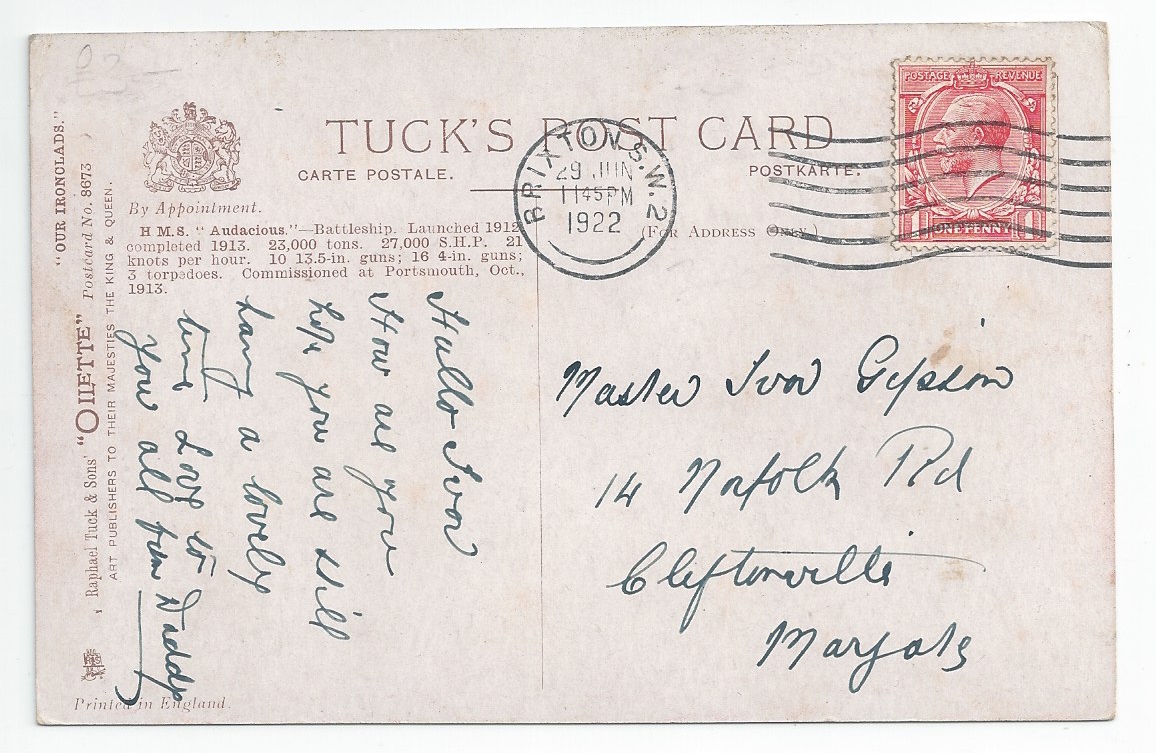 TUCK'S POST CARD
CARTE POSTALE.
POSTKARTE.
(FOR ADDRESS ONLY.)
By Appointment.
H M.S. "Audacious."—Battleship. Launched 1912
completed 1913. 23,000 tons. 27,000 S.H.P. 21
knots per hour. 10 13.5-in. guns; 16 4-in. guns;
3 torpedoes. Commissioned at Portsmouth, Oct.,
1913.
"OUR IRONCLADS."
Postcard No. 8673
Raphael Tuck & Sons' "OILETTE"
ART PUBLISHERS TO THEIR MAJESTIES THE KING & QUEEN.
Printed in England.
BRIXTON S.W.2
29 JUN
1145PM
1922
POSTAGE REVENUE
ONE PENNY
Hullo Ivor
How are you
hope you are still
having a lovely
time Love to
you all from Daddy
Master Ivor Gipson
14 Norfolk Rd
Cliftonville
Margate